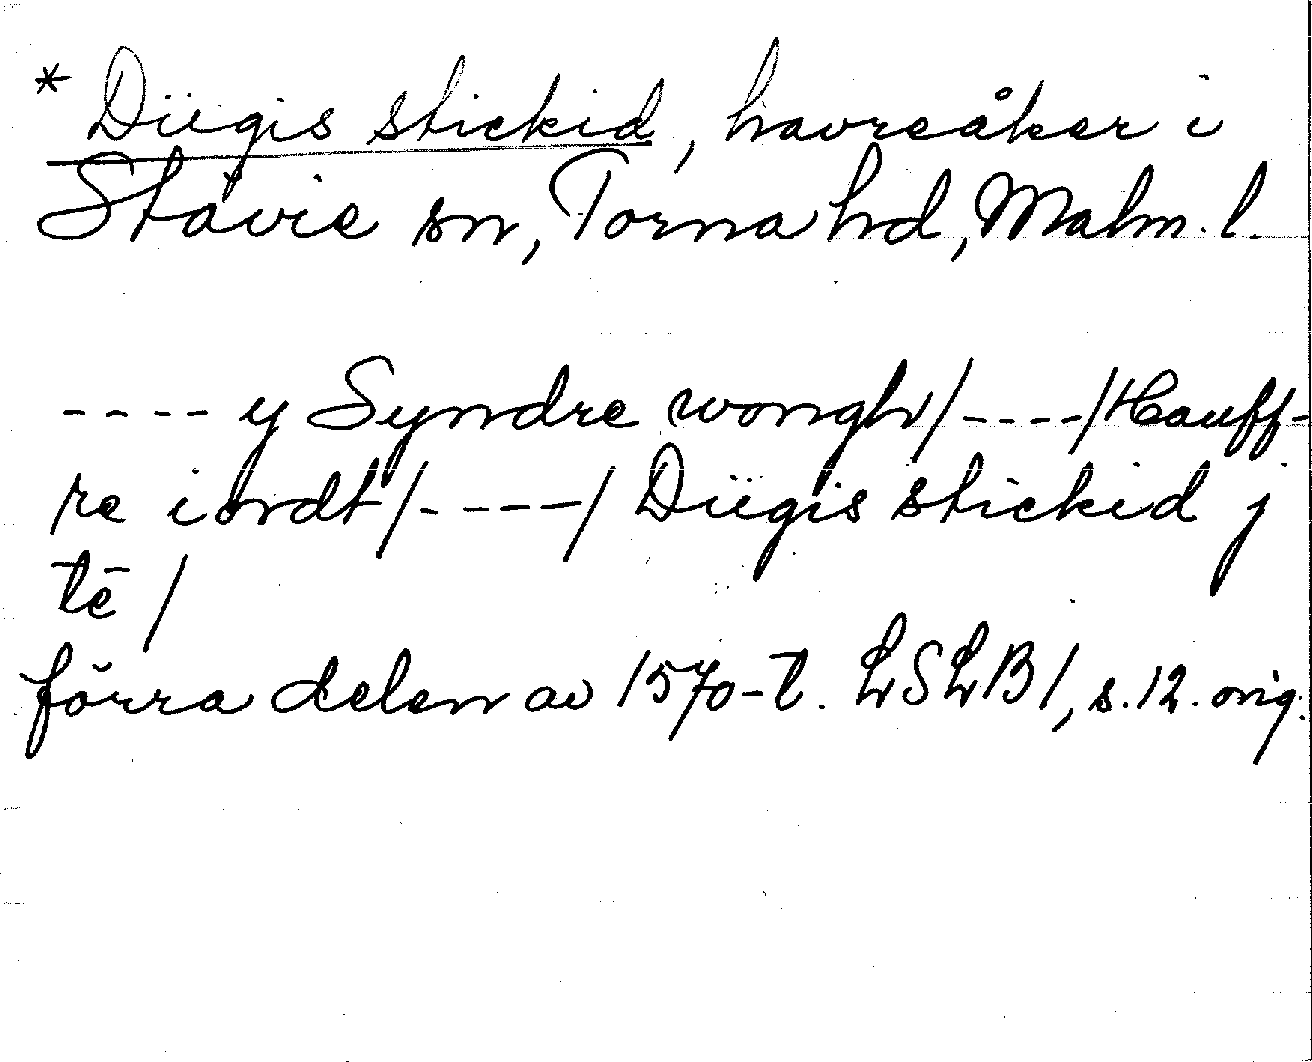 * Diiegis stickid, havreåker i
Stävie sn, Torna hd, Malm. l.
---- y Syndre wongh/----/Hauff-
re iordt/----/ Diiegis stickid j
tē /
förra delen av 1570-t. LSLB1, s.12. orig.